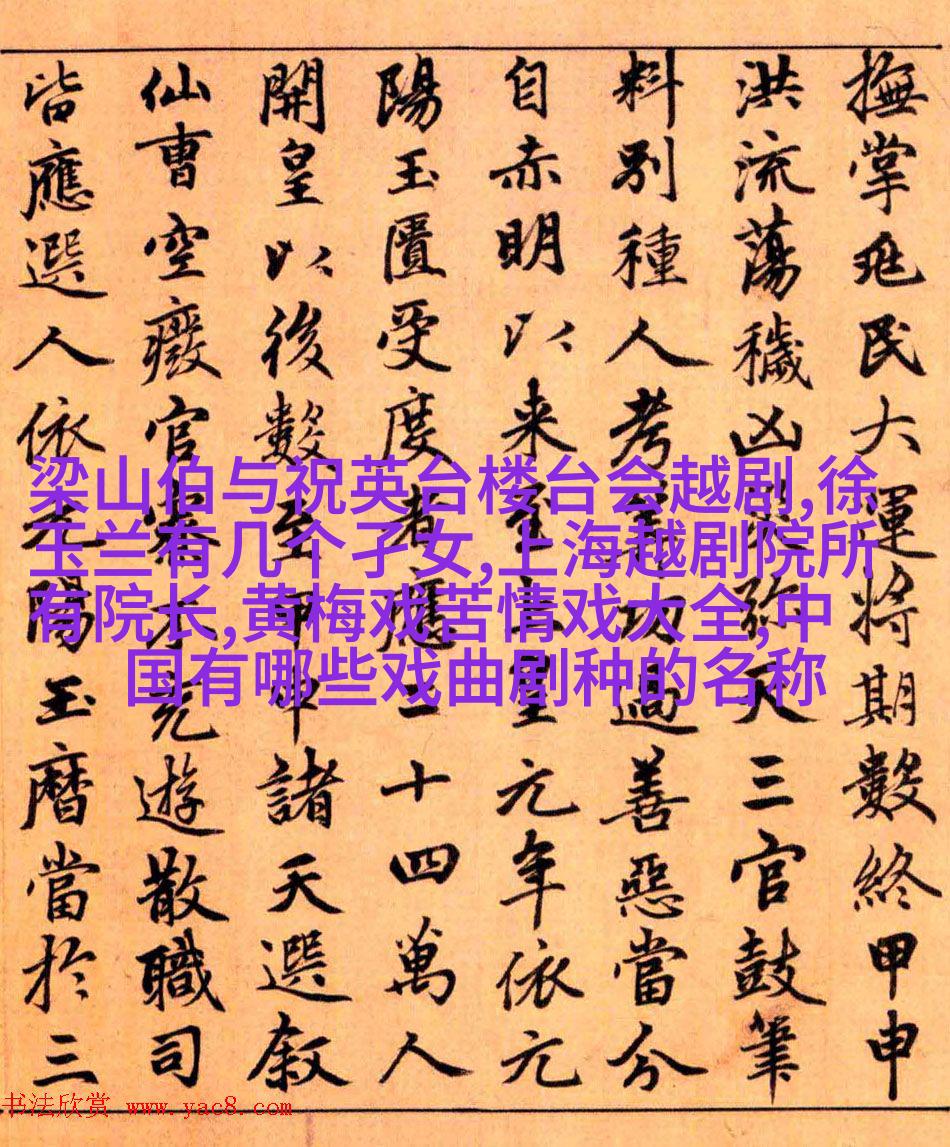 撫掌兆民大運將期數終甲申
洪流蕩穢凶災弥天三官鼓筆
料別種人考功過善惡當分
自赤明以来至上皇元年依元
陽玉匱受度者應二十四萬人
開皇以後數至甲申諸天選叙
仙曹空廢官僚不充遊散職司
皆應選人依元陽玉曆當於三
梁山伯与祝英台楼台会越剧,徐
玉兰有几个孑女,上海越剧院所
有院长,黄梅戏苦情戏大全,中
国有哪些戏曲剧种的名称
书法欣赏 www.yac8.com